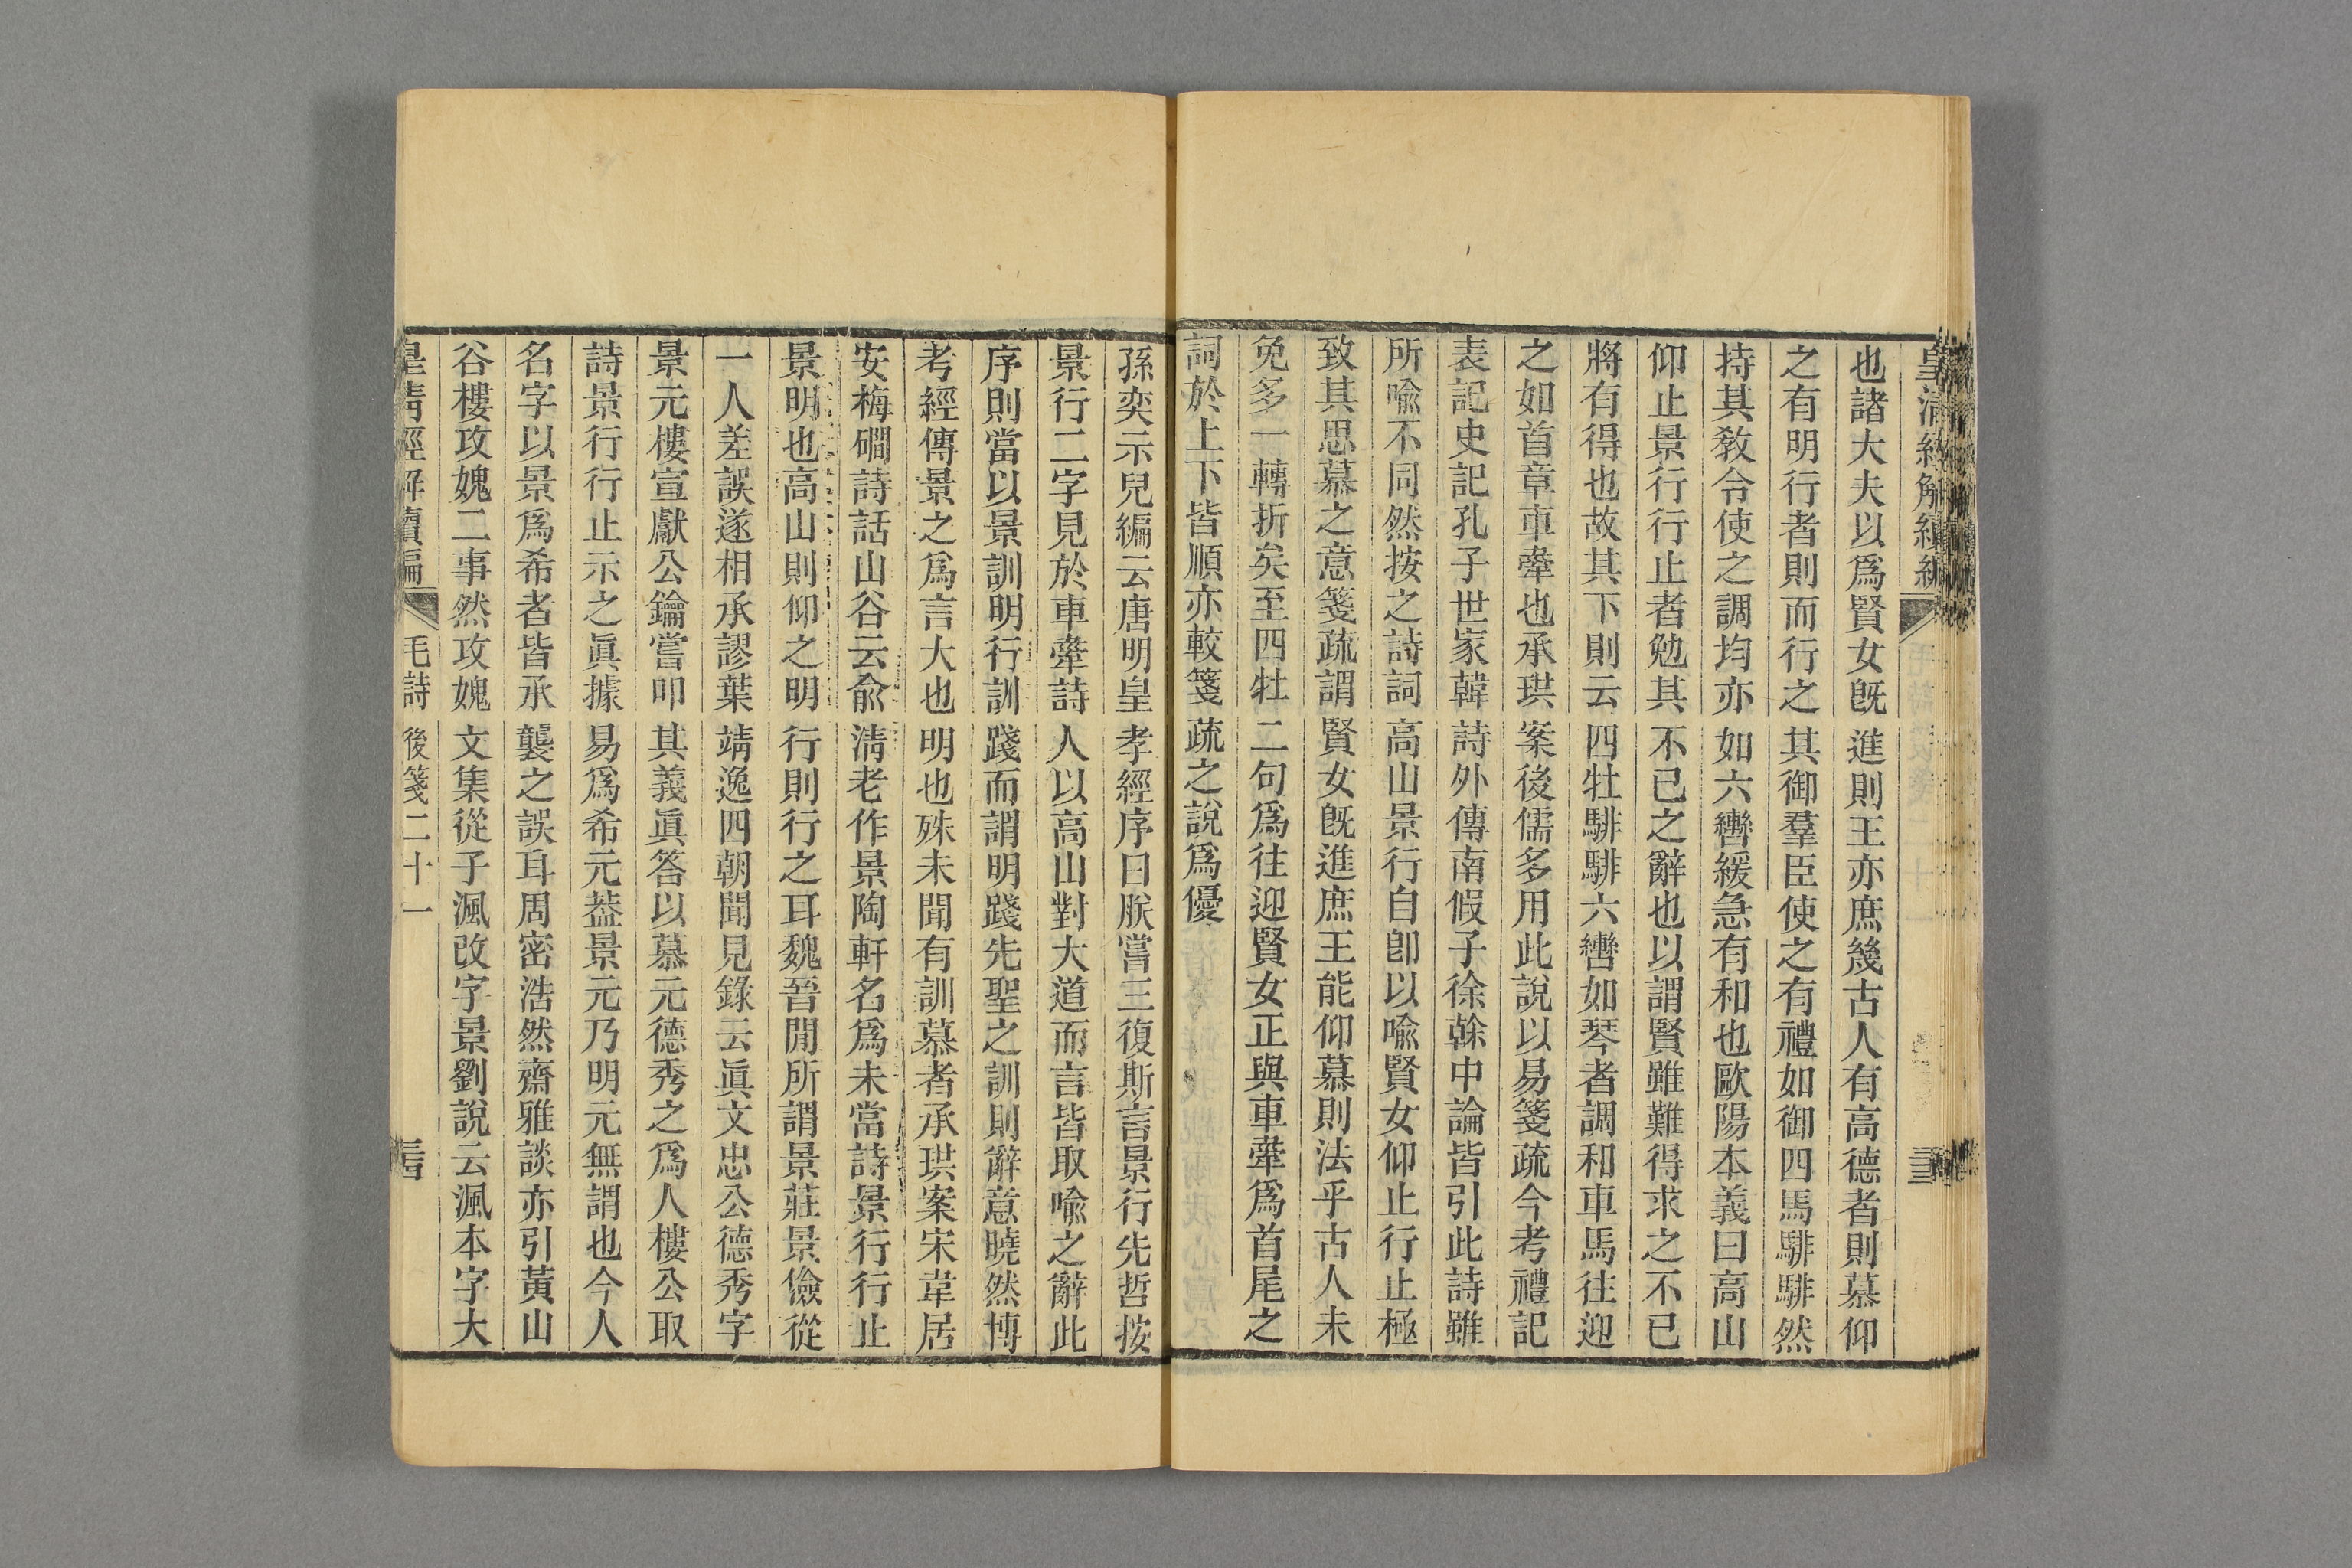 皇清經解續編
也諸大夫以爲賢女旣進則王亦庶幾古人有高德者則慕仰
之有明行者則而行之其御羣臣使之有禮如御四馬騑騑然
持其敎令使之調均亦如六轡緩急有和也歐陽本義曰高山
仰止景行行止者勉其不已之辭也以謂賢雖難得求之不已
將有得也故其下則云四牡騑騑六轡如琴者調和車馬往迎
之如首章車舝也承珙案後儒多用此說以易箋疏今考禮記
表記史記孔子世家韓詩外傳南假子徐榦中論皆引此詩雖
所喩不同然按之詩詞高山景行自卽以喩賢女仰止行止極
致其思慕之意箋疏謂賢女旣進庶王能仰慕則法乎古人未
免多一轉折矣至四牡二句爲往迎賢女正與車舝爲首尾之
詞於上下皆順亦較箋疏之說爲優
孫奕示兒編云唐明皇孝經序曰朕嘗三復斯言景行先哲按
景行二字見於車舝詩人以高山對大道而言皆取喩之辭此
序則當以景訓明行訓踐而謂明踐先聖之訓則辭意曉然博
考經傳景之爲言大也明也殊未聞有訓慕者承珙案宋韋居
安梅磵詩話山谷云兪淸老作景陶軒名爲未當詩景行行止
景明也高山則仰之明行則行之耳魏晉閒所謂景莊景儉從
一人差誤遂相承謬葉靖逸四朝聞見錄云眞文忠公德秀字
景元樓宣獻公鑰嘗叩其義眞答以慕元德秀之爲人樓公取
詩景行行止示之眞據易爲希元葢景元乃明元無謂也今人
名字以景爲希者皆承襲之誤耳周密浩然齋雅談亦引黃山
谷樓攻媿二事然攻媿文集從子渢改字景劉說云渢本字大
皇淸經解續編 毛詩後箋二十一